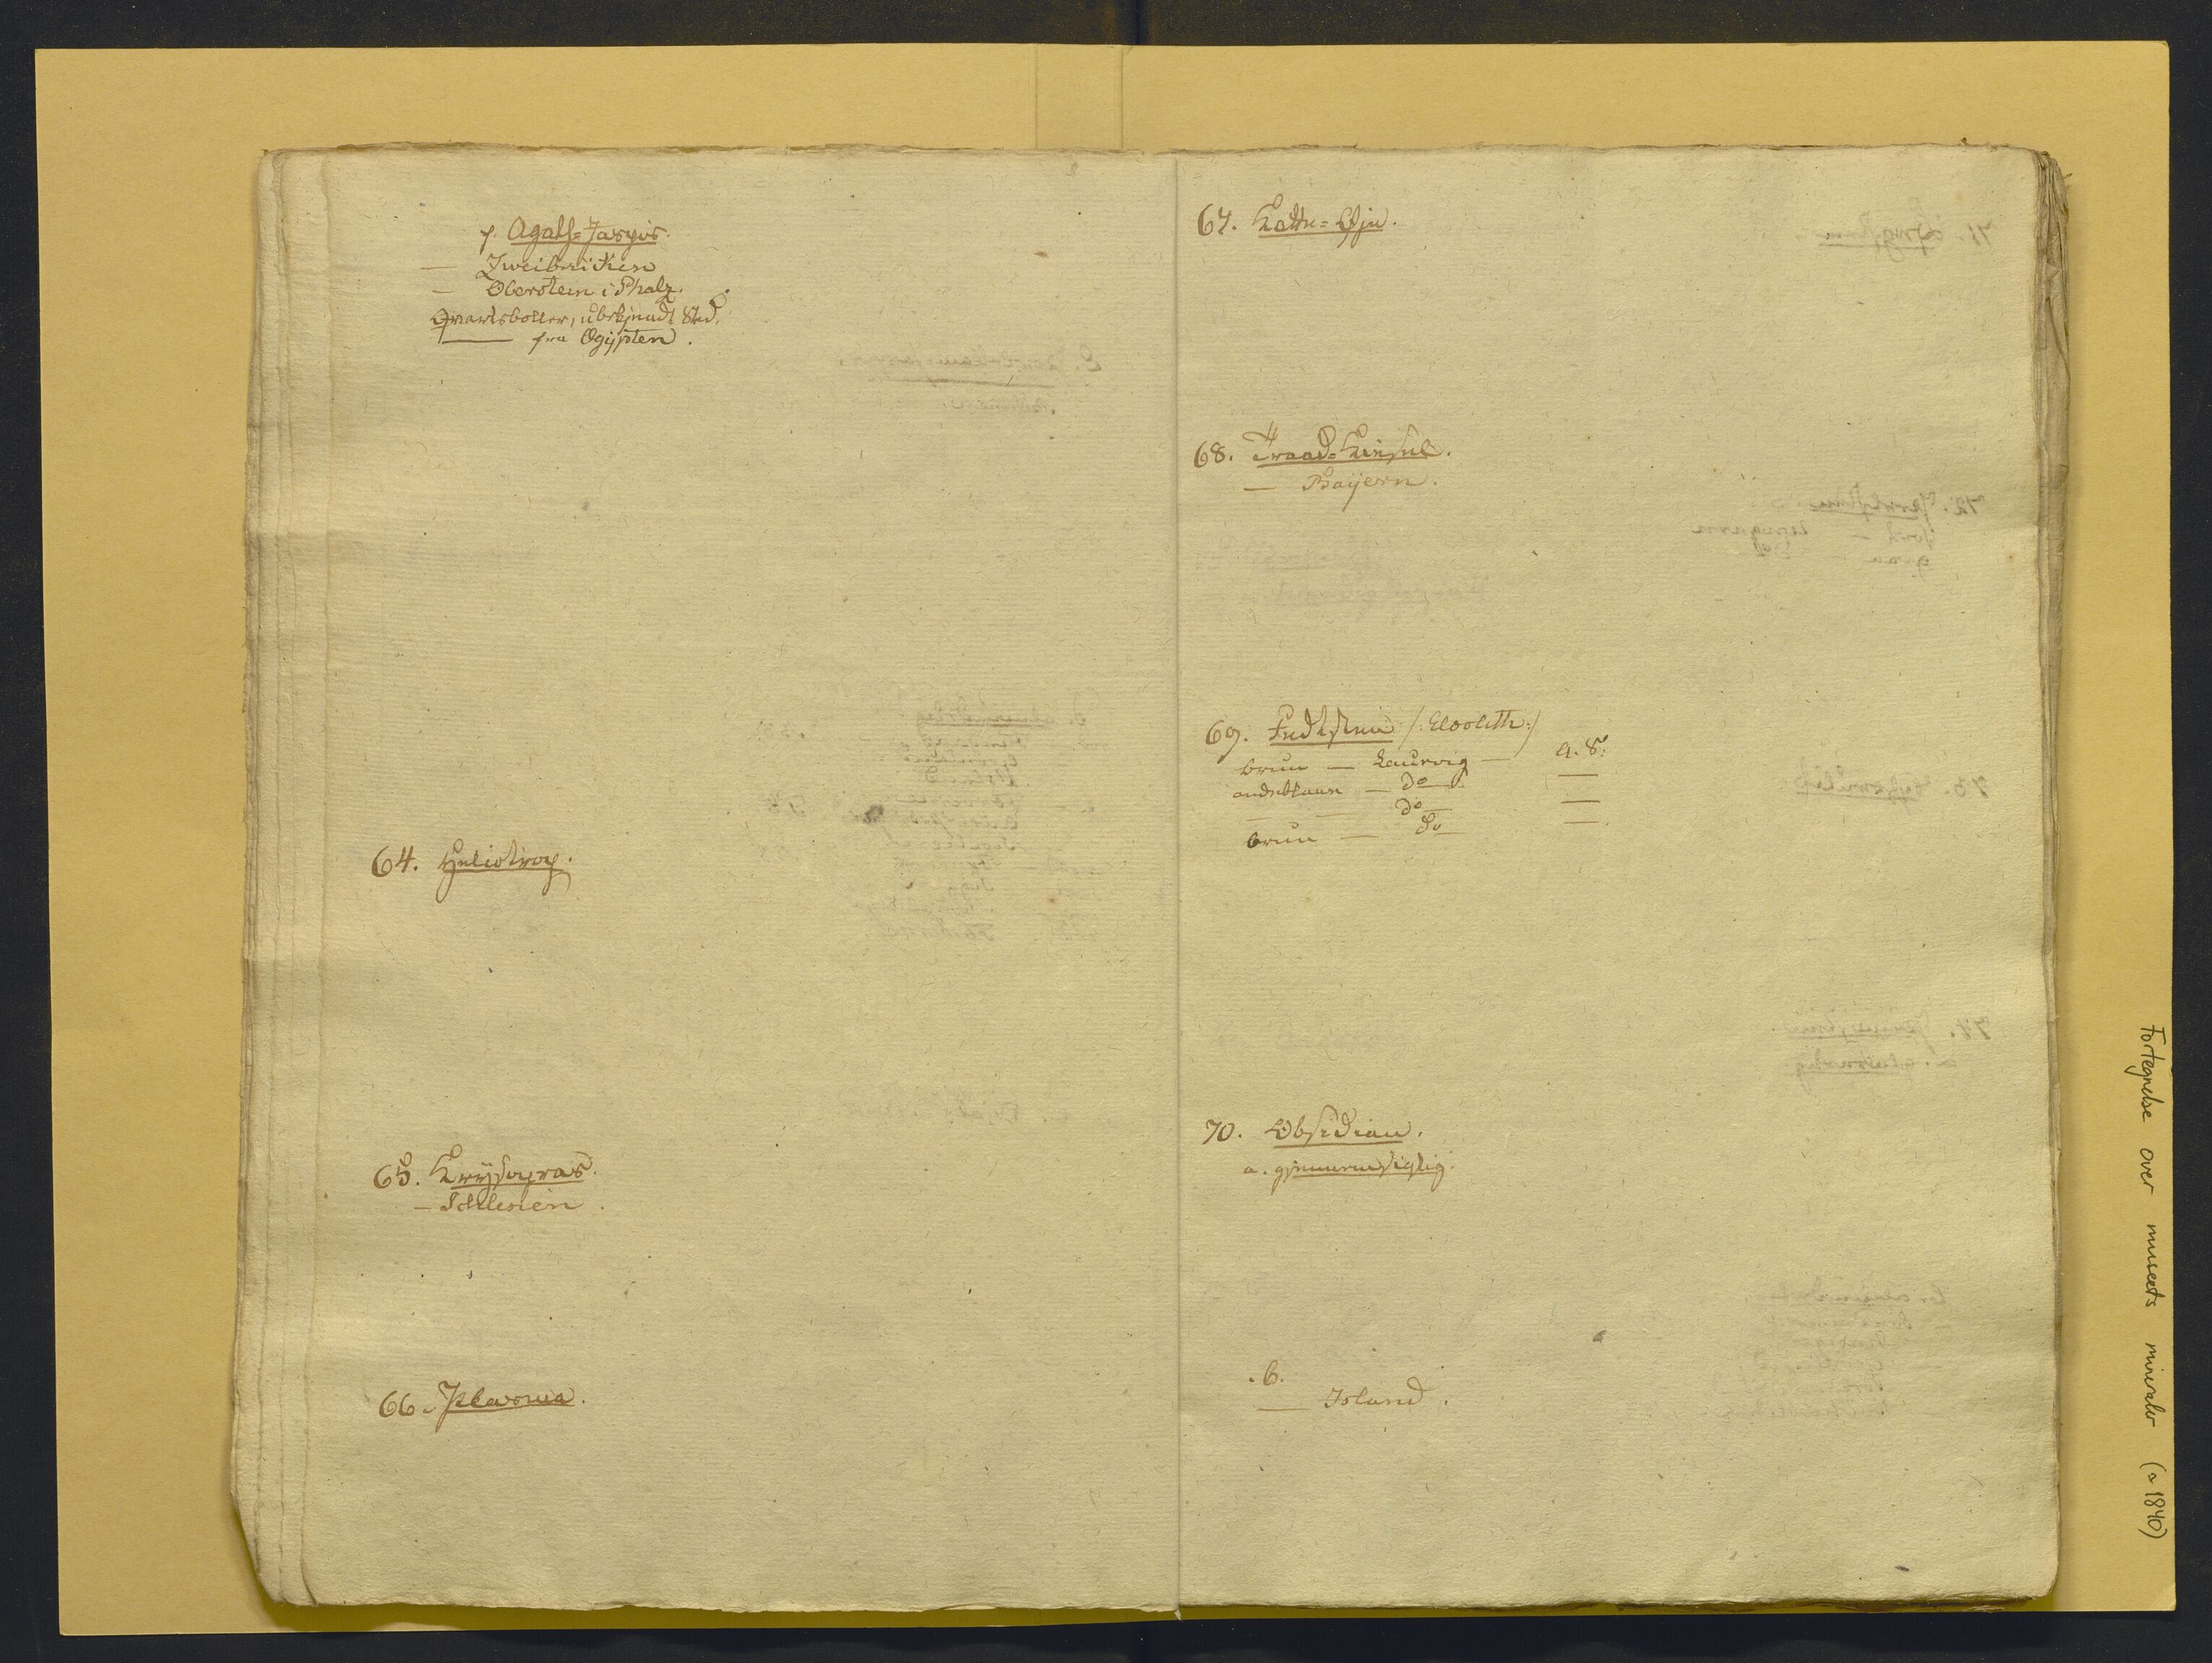 f. Agath=Jaspis.
— Zweibrücken
— Oberstein i Phalz.
Qvartsboller, ubekjendt Sted.
—— fra Ægypten.
64. Heliotrop.
65. Krÿsopras.
— Schlesien.
66. Plasma.
67. Katte=Øje.
68. Traad=Kisel.
— Bayern.
69. Fedtsteen /: Eloolith :/
brun — Laurvig — A. S.
andeblaae — do —
— — do —
brun — do —
70. Obsidian.
a. gjennemsigtig.
b.
— Island.
Fortegnelse over museets mineraler (ca 1840)